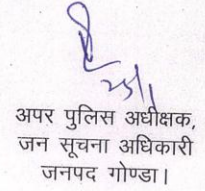 अपर पुलिस अधीक्षक,
जन सूचना अधिकारी
जनपद गोण्डा।